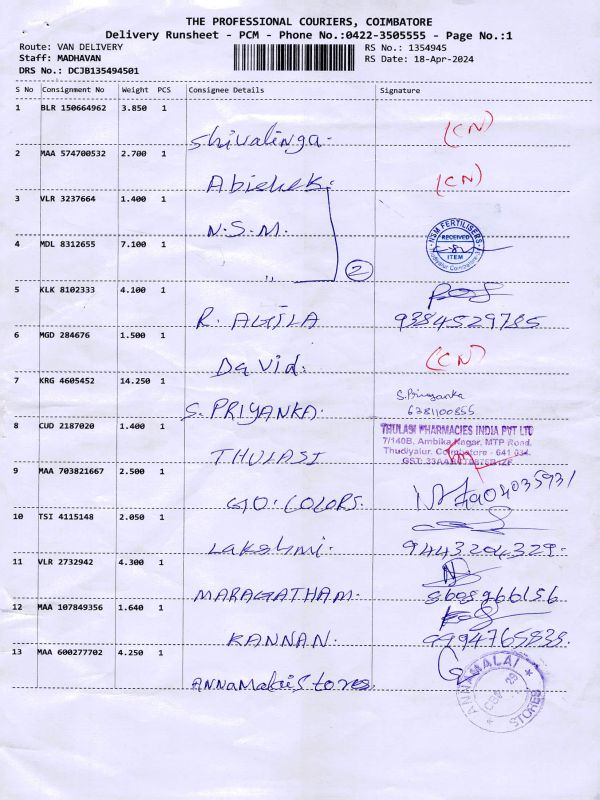 THE PROFESSIONAL COURIERS, COIMBATORE
Delivery Runsheet - PCM - Phone No.:0422-3505555 - Page No.:1
Route: VAN DELIVERY RS No.: 1354945
Staff: MADHAVAN RS Date: 18-Apr-2024
DRS No.: DCJB135494501
S No Consignment No Weight PCS Consignee Details Signature
1 BLR 150664962 3.850 1
Shivalinga. (CN)
2 MAA 574700532 2.700 1
Abishek. (CN)
3 VLR 3237664 1.400 1
N.S.M. NSM FERTILISERS RECEIVED ITEM Thudiyalur Coimbatore
4 MDL 8312655 7.100 1
,, 2
5 KLK 8102333 4.100 1
R. AGILA 9384529785
6 MGD 284676 1.500 1
David. (CN)
7 KRG 4605452 14.250 1
S. PRIYANKA. S. Priyanka
6381100855
8 CUD 2187020 1.400 1
THULASI THULASI PHARMACIES INDIA PVT LTD
7/140B, Ambika Nagar, MTP Road,
Thudiyalur, Coimbatore - 641 034.
9 MAA 703821667 2.500 1
G.O. COLORS.
10 TSI 4115148 2.050 1
Lakshmi. 9443204329.
11 VLR 2732942 4.300 1
MARAGATHAM.
12 MAA 107849356 1.640 1
KANNAN. 9994765835
13 MAA 600277702 4.250 1
Annamalai Stores. ANNAMALAI STORES